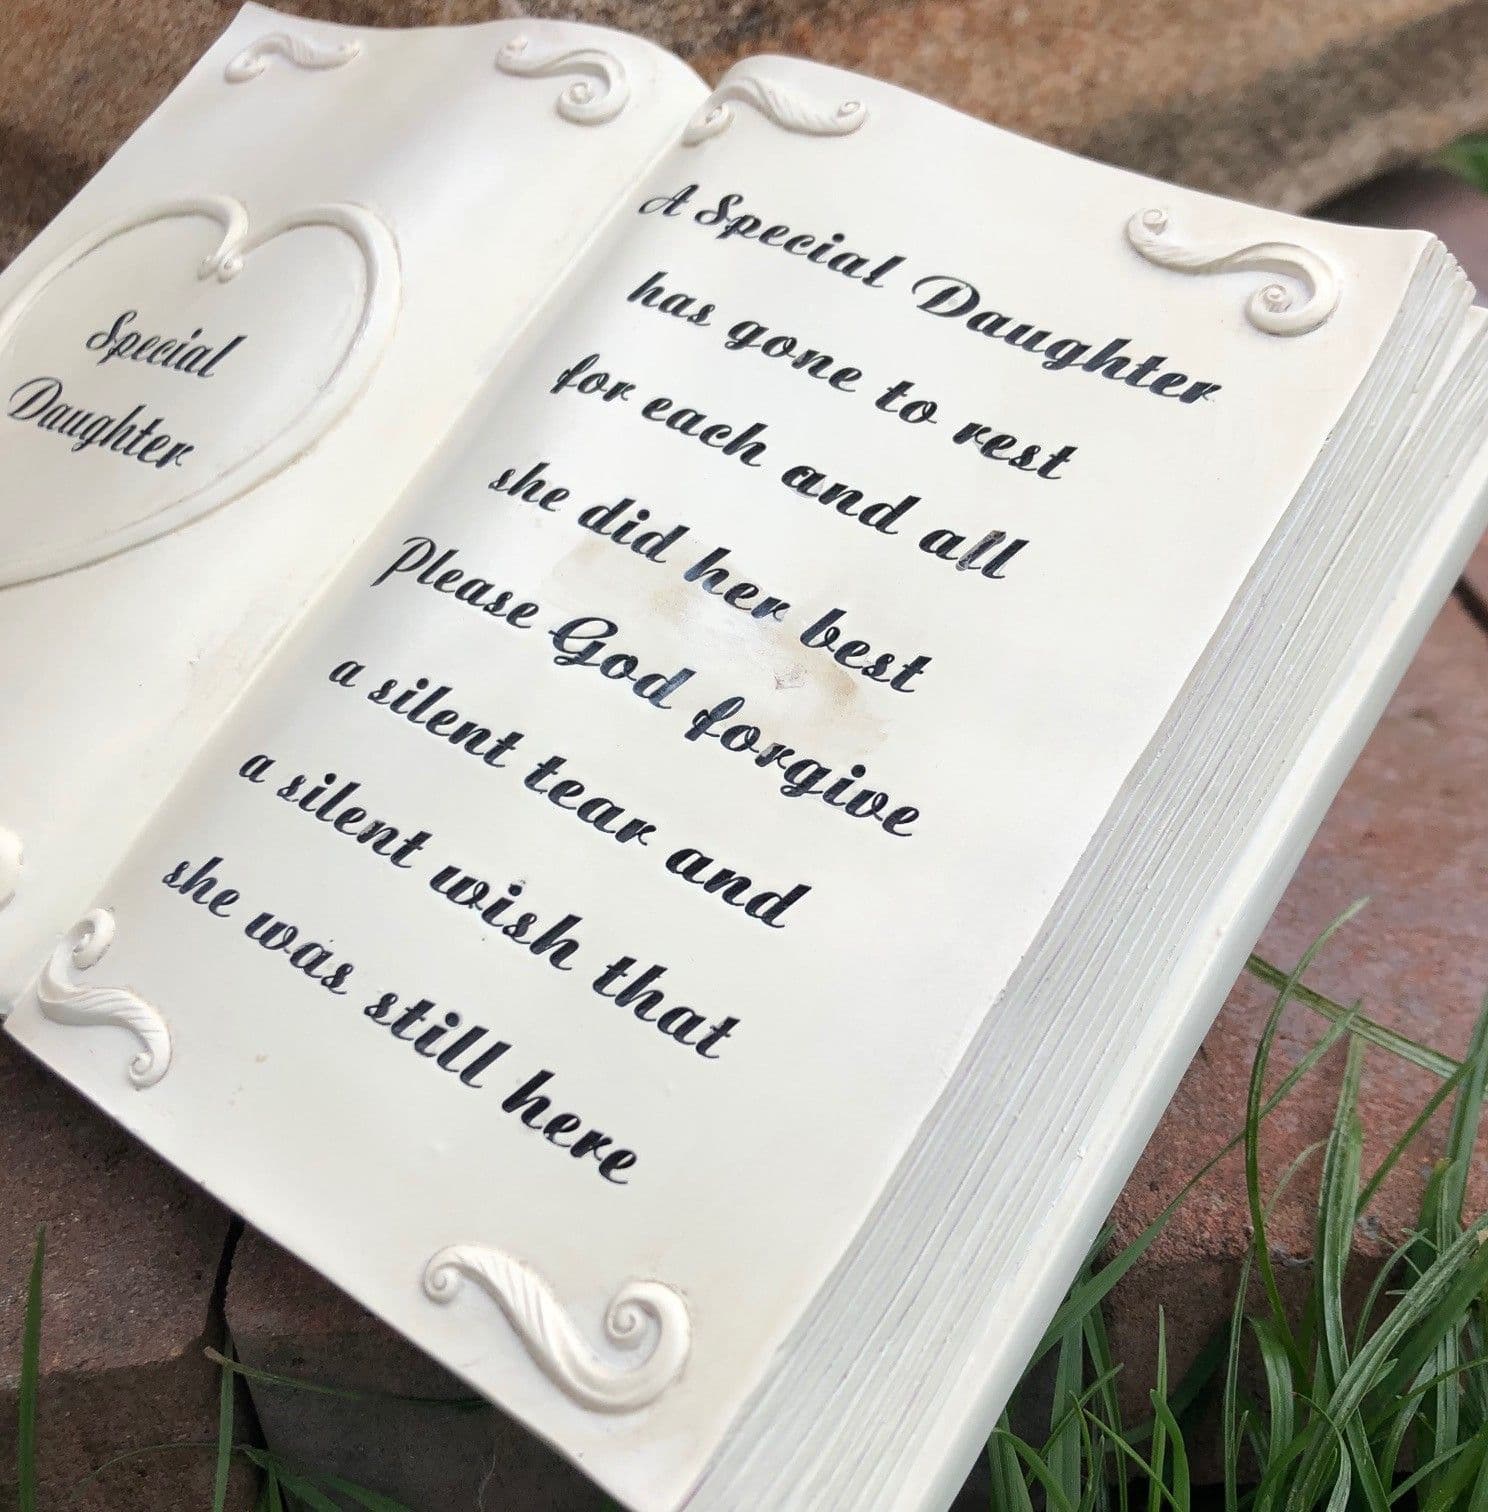 Special
Daughter
A Special Daughter
has gone to rest
for each and all
she did her best
Please God forgive
a silent tear and
a silent wish that
she was still here